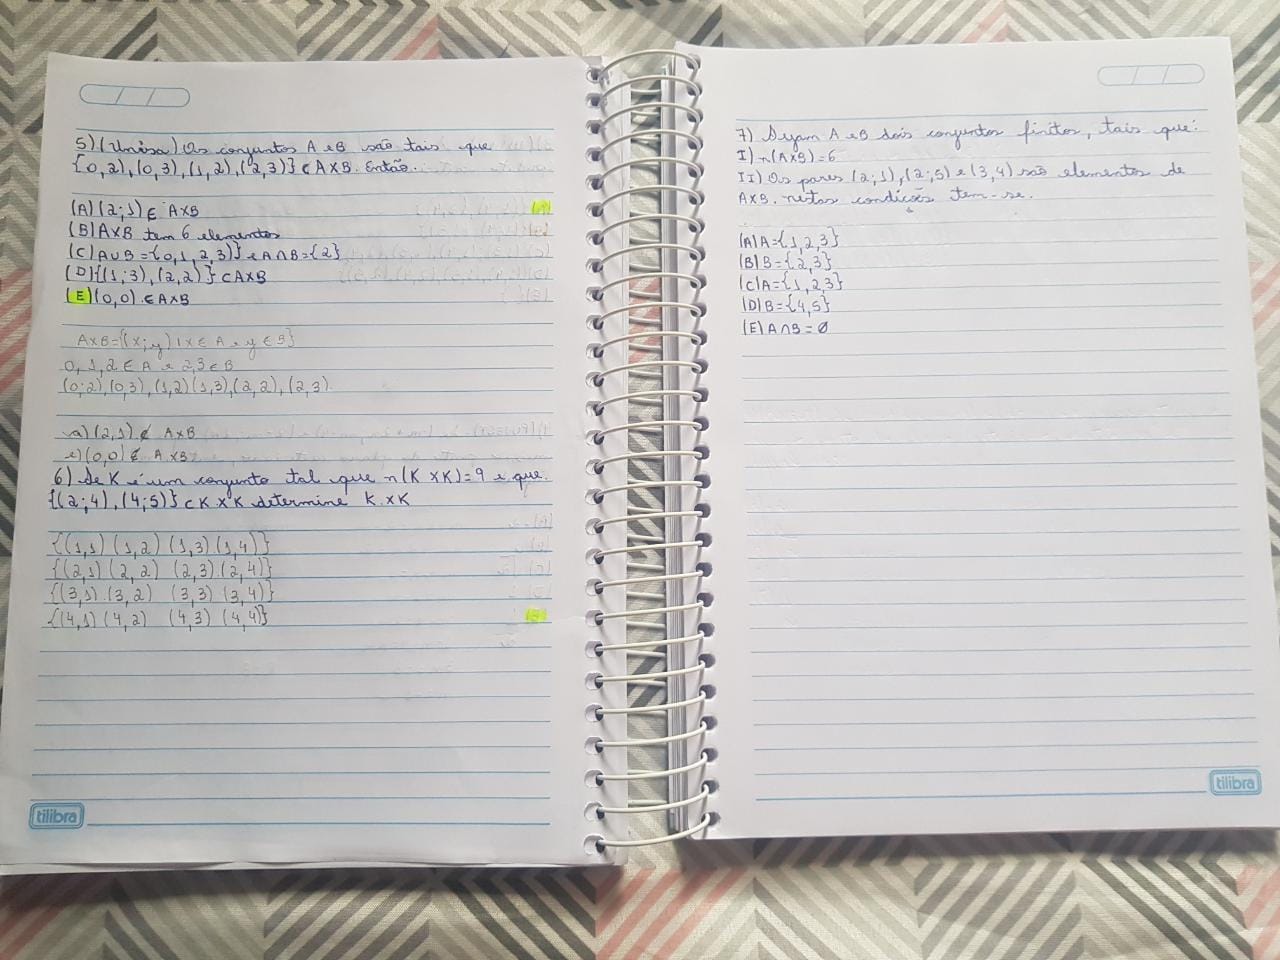 5) (Unisa) Os conjuntos A e B são tais que
{0,2),(0,3),(1,2),(2,3)} ⊂ AXB. Então.
(A) (2;1) ∈ AXB
(B) AXB tem 6 elementos
(C) A∪B={0,1,2,3)} e A∩B={2}
(D) {(1;3),(2,2)} ⊂ AXB
(E) (0,0) ∈ AXB
AXB={(x;y) | x ∈ A e y ∈ B}
0, 1, 2 ∈ A e 2,3 ∈ B
(0;2),(0,3),(1,2)(1,3),(2,2),(2,3).
a) (2,1) ∉ AXB
e) (0,0) ∉ AXB
6) Se K é um conjunto tal que n(K XK)=9 e que.
{(2;4),(4;5)} ⊂ K X K determine K.XK
{(1,1) (1,2) (1,3) (1,4)}
{(2,1) (2,2) (2,3).(2,4)}
{(3,1).(3,2) (3,3) (3,4)}
{(4,1) (4,2) (4,3) (4,4)}
tilibra
7) Sejam A e B dois conjuntos finitos, tais que:
I) n(AXB)=6
II) Os pares (2;1),(2;5) e (3,4) são elementos de
AXB. nestas condições tem-se.
(A) A={1,2,3}
(B) B={2,3}
(C) A={1,2,3}
(D) B={4,5}
(E) A∩B=Ø
tilibra